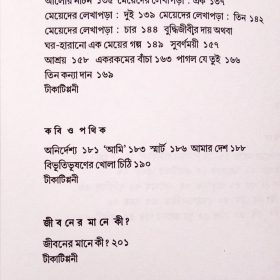 আলোয় নাচন ১৩৫ মেয়েদের লেখাপড়া : এক ১৩৭
মেয়েদের লেখাপড়া : দুই ১৩৯ মেয়েদের লেখাপড়া : তিন ১৪২
মেয়েদের লেখাপড়া : চার ১৪৪ বুদ্ধিজীবীর দায় অথবা
ঘর-হারানো এক মেয়ের গল্প ১৪৯ সুবর্ণময়ী ১৫৭
আশ্রয় ১৫৮ একরকমের বাঁচা ১৬৩ পাগল যে তুই ১৬৬
তিন কন্যা দান ১৬৯
টীকাটিপ্পনী
কবি ও পথিক
অনির্দেশ্য ১৮১ 'আমি' ১৮৩ স্মার্ট ১৮৬ আমার দেশ ১৮৮
বিভূতিভূষণের খোলা চিঠি ১৯০
টীকাটিপ্পনী
জীবনের মানে কী?
জীবনের মানে কী? ২০১
টীকাটিপ্পনী